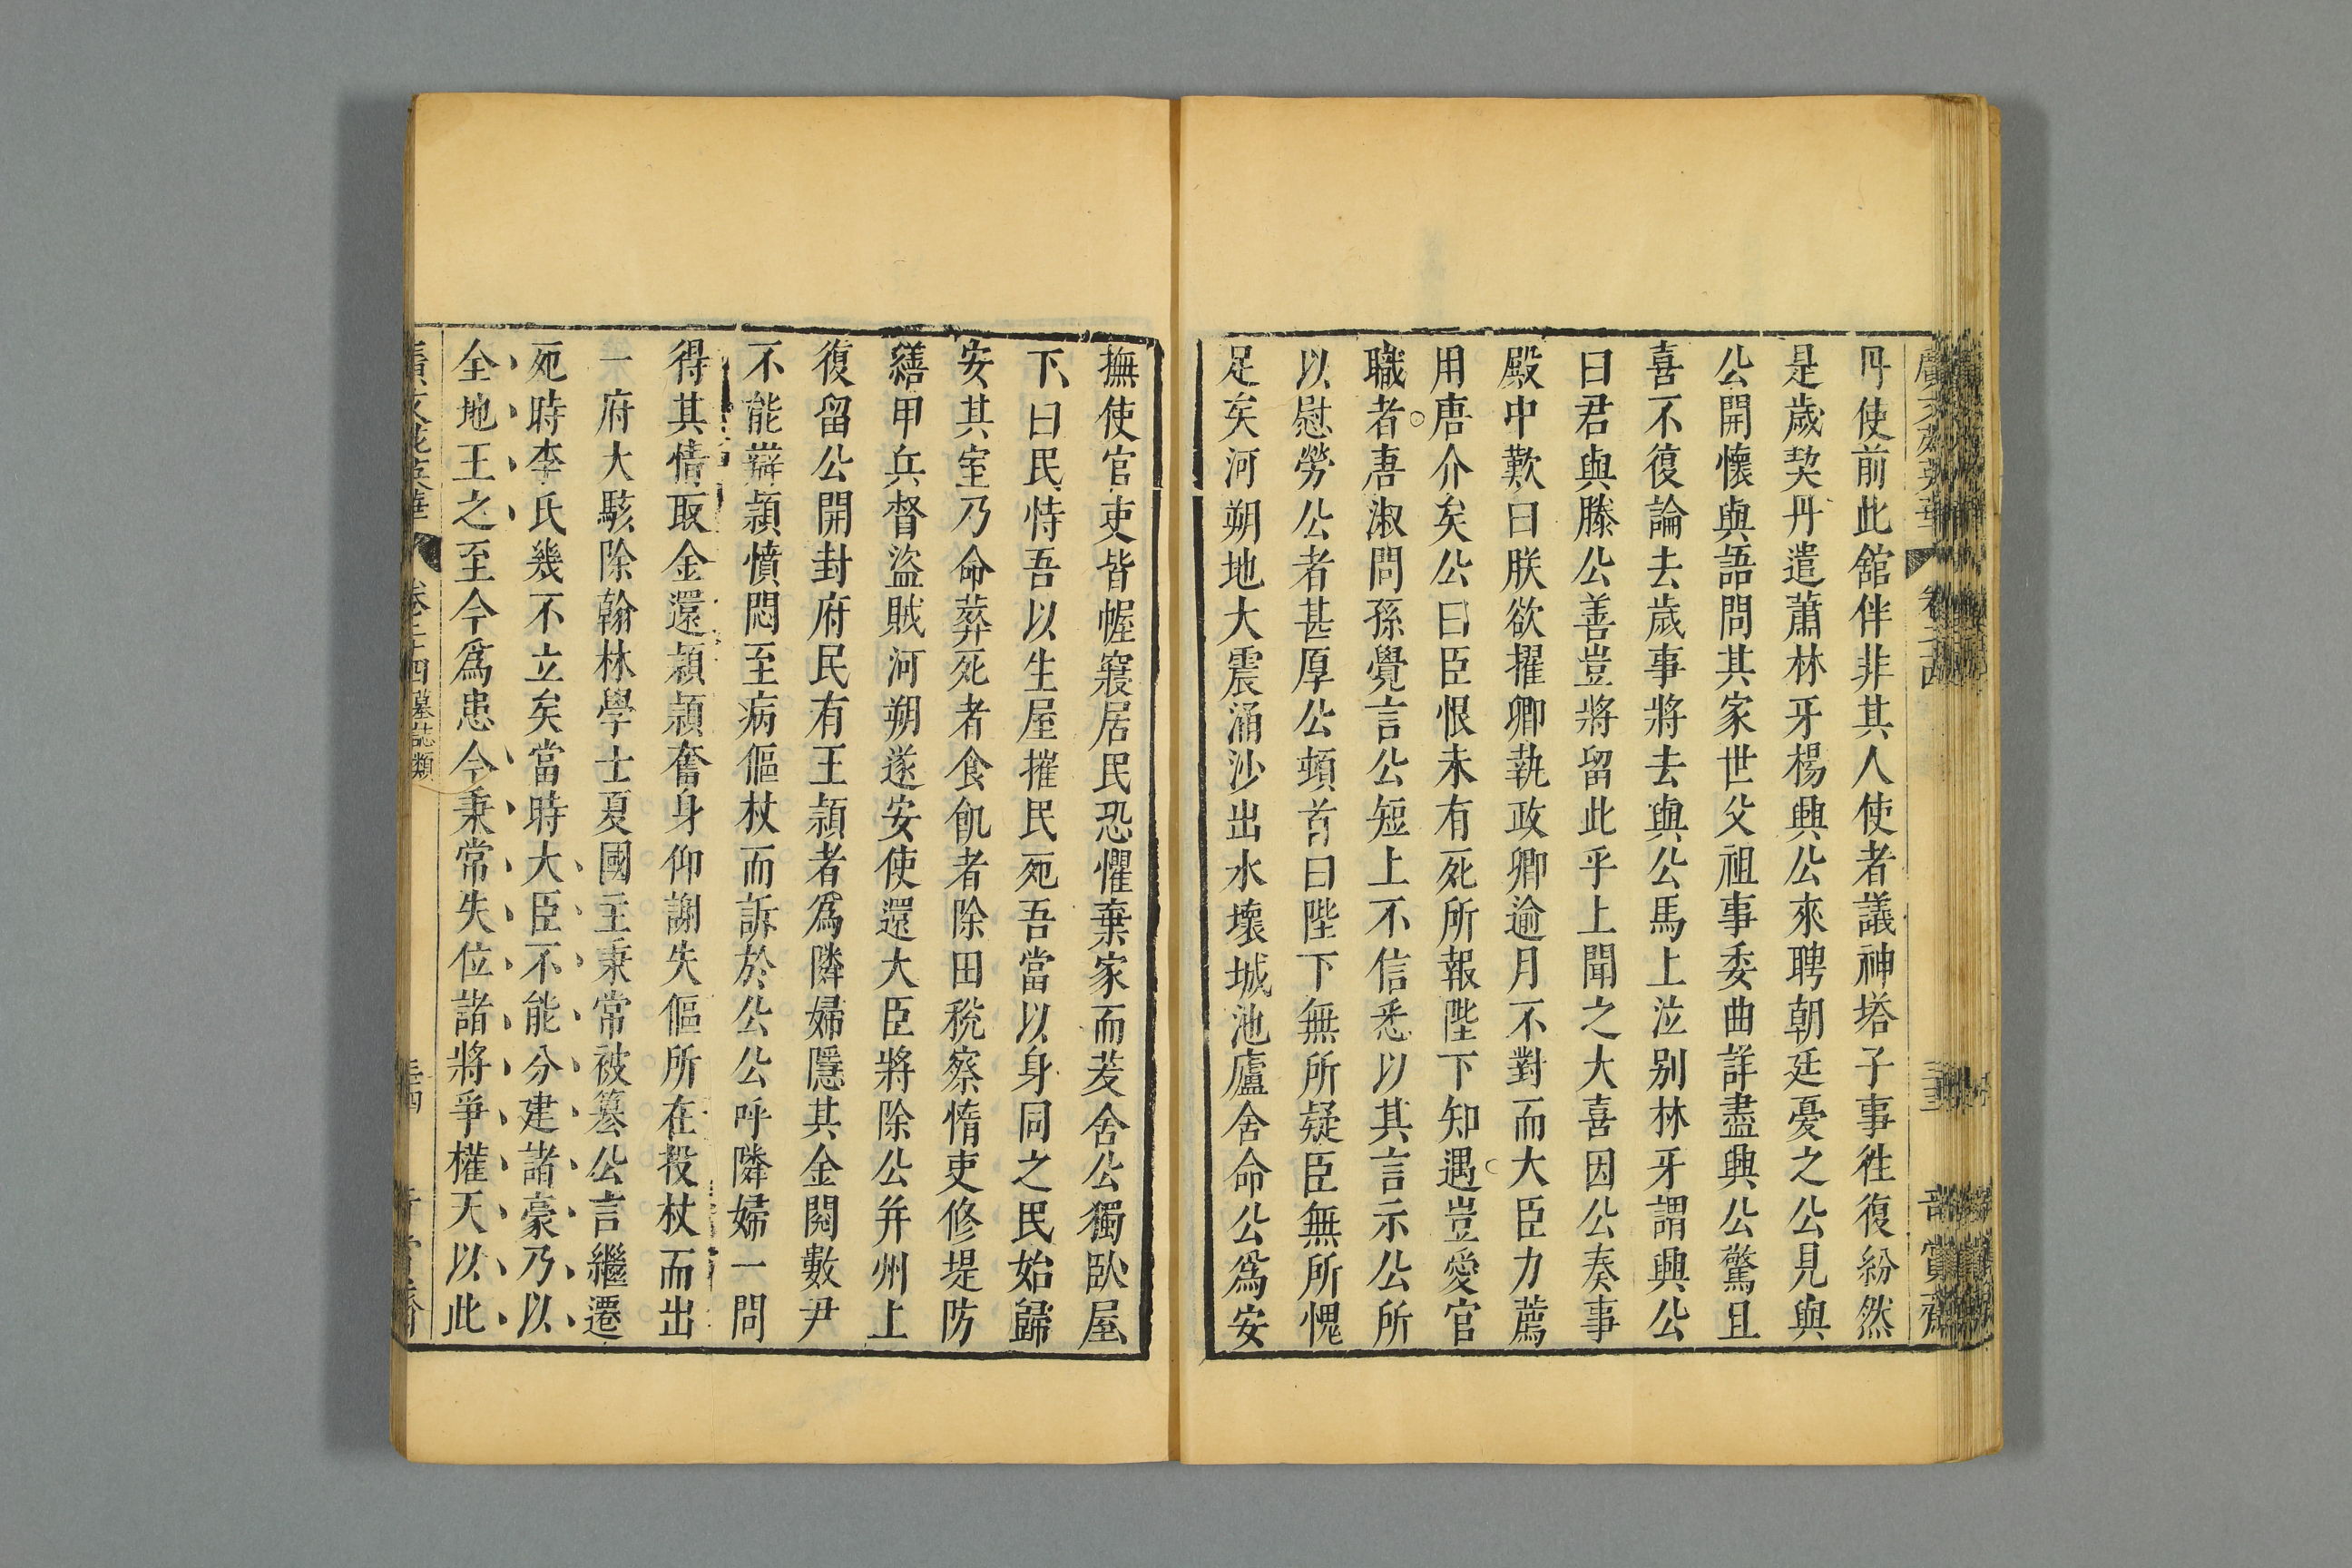 丹使前此舘伴非其人使者議神塔子事徃復紛然
是歲契丹遣蕭林牙楊興公來聘朝廷憂之公見與
公開懷與語問其家世父祖事委曲詳盡興公驚且
喜不復論去歲事將去與公馬上泣别林牙謂興公
曰君與滕公善豈將留此乎上聞之大喜因公奏事
殿中歎曰朕欲擢卿執政卿逾月不對而大臣力薦
用唐介矣公曰臣恨未有死所報陛下知遇豈愛官
職者唐淑問孫覺言公短上不信悉以其言示公所
以慰勞公者甚厚公頓首曰陛下無所疑臣無所愧
足矣河朔地大震涌沙出水壞城池廬舍命公爲安
撫使官吏皆幄寢居民恐懼棄家而茇舍公獨臥屋
下曰民恃吾以生屋摧民死吾當以身同之民始歸
安其室乃命葬死者食飢者除田稅察惰吏修堤防
繕甲兵督盜賊河朔遂安使還大臣將除公并州上
復留公開封府民有王頴者爲隣婦隱其金閱數尹
不能辯頴憤悶至病傴杖而訴於公公呼隣婦一問
得其情取金還頴頴奮身仰謝失傴所在投杖而出
一府大駭除翰林學士夏國主秉常被篡公言繼遷
死時李氏幾不立矣當時大臣不能分建諸豪乃以
全地王之至今爲患今秉常失位諸將爭權天以此
墓誌類